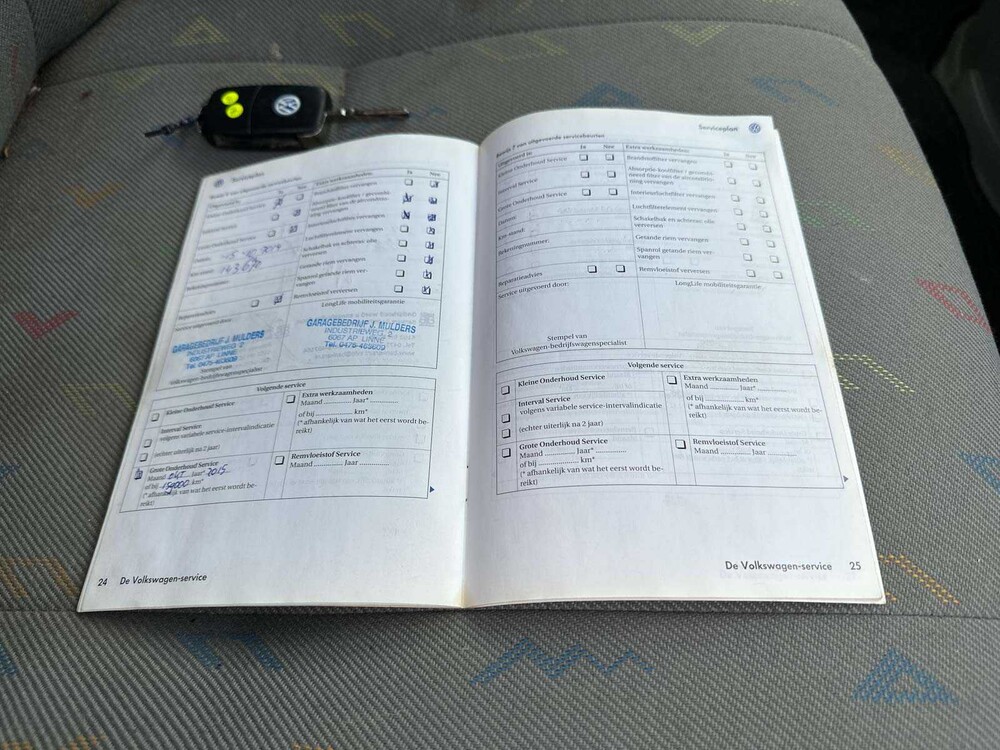 Extra werkzaamheden:
Ja Nee
ning vervangen
Interieurfilter vervangen
Luchtfilterelement vervangen
Schakelbak en achteras: olie
verversen
Getande riem vervangen
Spannrol getande riem ver-
vangen
Remvloeistof verversen
LongLife mobiliteitsgarantie
143.670
Reparatieadvies
Service uitgevoerd door:
GARAGEBEDRIJF J. MULDERS
INDUSTRIEWEG 2
6067 AP LINNE
Tel. 0475-463609
Stempel van
Volkswagen-bedrijfswagenspecialist
GARAGEBEDRIJF J. MULDERS
INDUSTRIEWEG 2
6067 AP LINNE
Tel. 0475-463609
Volgende service
Kleine Onderhoud Service
Interval Service
volgens variabele service-intervalindicatie
(echter uiterlijk na 2 jaar)
Grote Onderhoud Service
Maand OKT Jaar* 2015
of bij km*
(* afhankelijk van wat het eerst wordt be-
reikt)
Extra werkzaamheden
Maand Jaar*
of bij km*
(* afhankelijk van wat het eerst wordt be-
reikt)
Remvloeistof Service
Maand Jaar
24 De Volkswagen-service
Serviceplan
Bewijs 7 van uitgevoerde servicebeurten
Uitgevoerd is: Ja Nee
Kleine Onderhoud Service
Interval Service
Grote Onderhoud Service
Datum:
Km-stand:
Rekeningnummer:
Reparatieadvies
Service uitgevoerd door:
Stempel van
Volkswagen-bedrijfswagenspecialist
Extra werkzaamheden: Ja Nee
Brandstoffilter vervangen
Absorptie koolfilter / gecombi-
neerd filter van de airconditio-
ning vervangen
Interieurluchtfilter vervangen
Luchtfilterelement vervangen
Schakelbak en achteras: olie
verversen
Getande riem vervangen
Spannrol getande riem ver-
vangen
Remvloeistof verversen
LongLife mobiliteitsgarantie
Volgende service
Kleine Onderhoud Service
Interval Service
volgens variabele service-intervalindicatie
(echter uiterlijk na 2 jaar)
Grote Onderhoud Service
Maand Jaar*
of bij km*
(* afhankelijk van wat het eerst wordt be-
reikt)
Extra werkzaamheden
Maand Jaar*
of bij km*
(* afhankelijk van wat het eerst wordt be-
reikt)
Remvloeistof Service
Maand Jaar
De Volkswagen-service 25